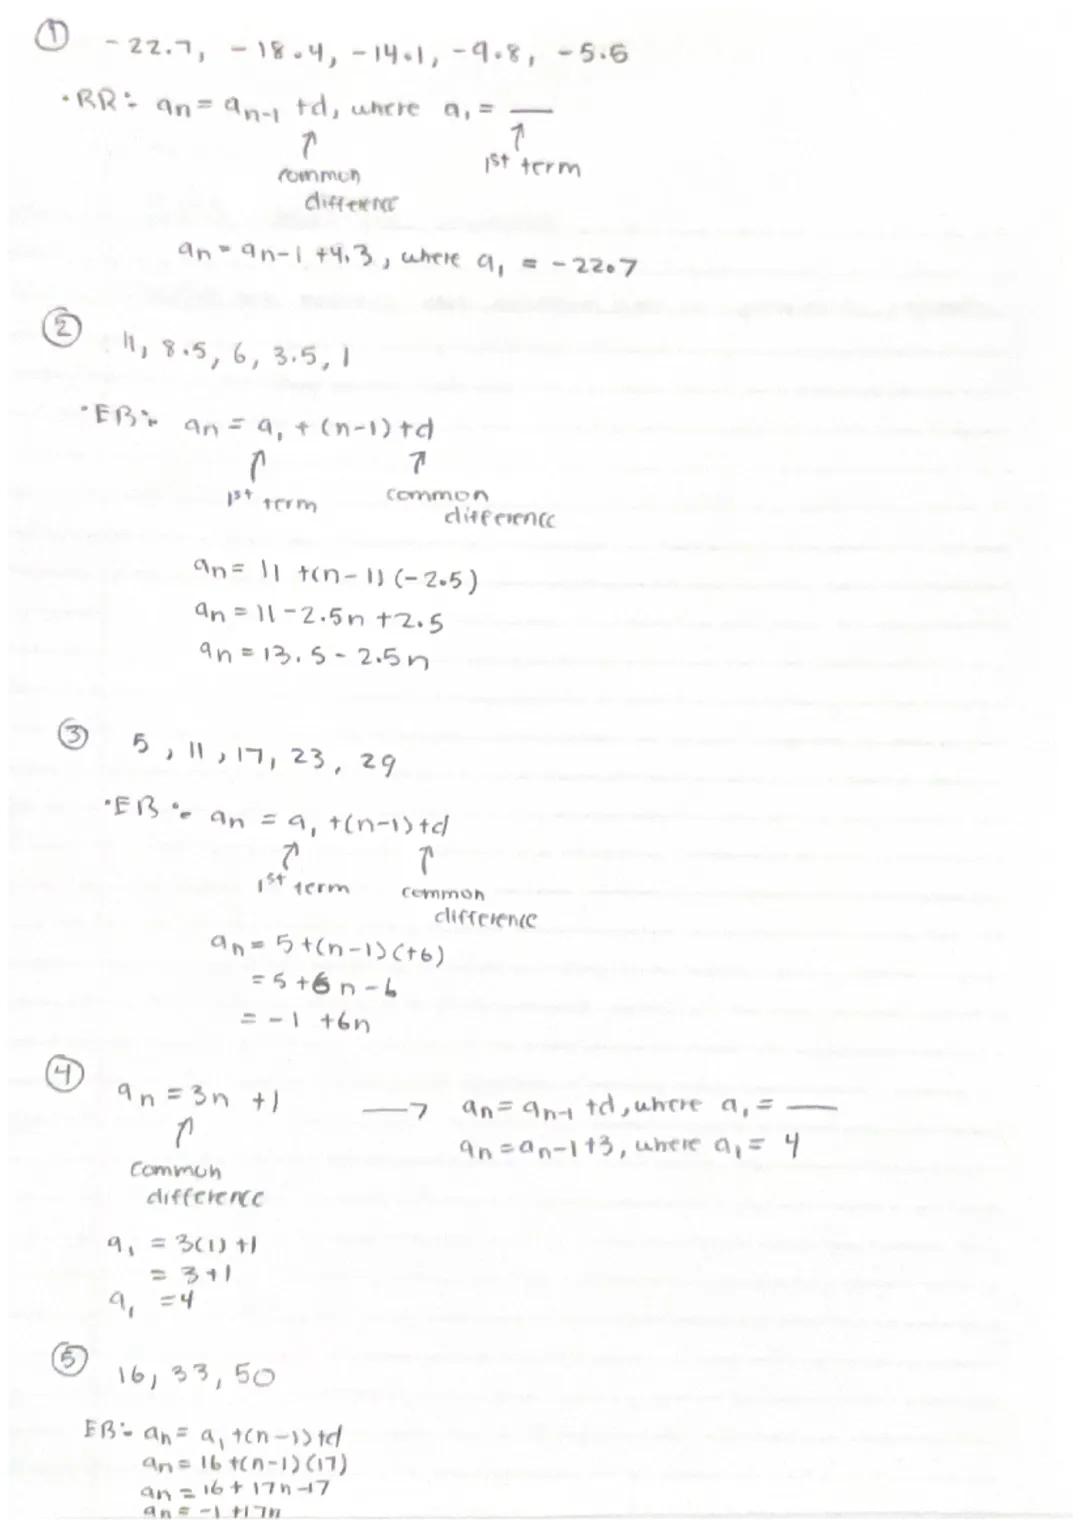 ① -22.7, -18.4, -14.1, -9.8, -5.5
• RR: an = an-1 +d, where a1 = __
↑ ↑
common 1st term
difference
an = an-1 +4.3, where a1 = -22.7
② 11, 8.5, 6, 3.5, 1
• ER: an = a1 + (n-1)+d
↑ ↑
1st term common
difference
an = 11 +(n-1)(-2.5)
an = 11 -2.5n +2.5
an = 13.5 - 2.5n
③ 5, 11, 17, 23, 29
• ER: an = a1 +(n-1)+d
↑ ↑
1st term common
difference
an = 5+(n-1)(+6)
= 5+6n-6
= -1 +6n
④ an = 3n +1 → an = an-1 +d, where a1 = __
↑ an = an-1+3, where a1 = 4
common
difference
a1 = 3(1) +1
= 3+1
a1 = 4
⑤ 16, 33, 50
ER: an = a1 +(n-1)+d
an = 16 +(n-1)(17)
an = 16 + 17n -17
an = -1 +17n